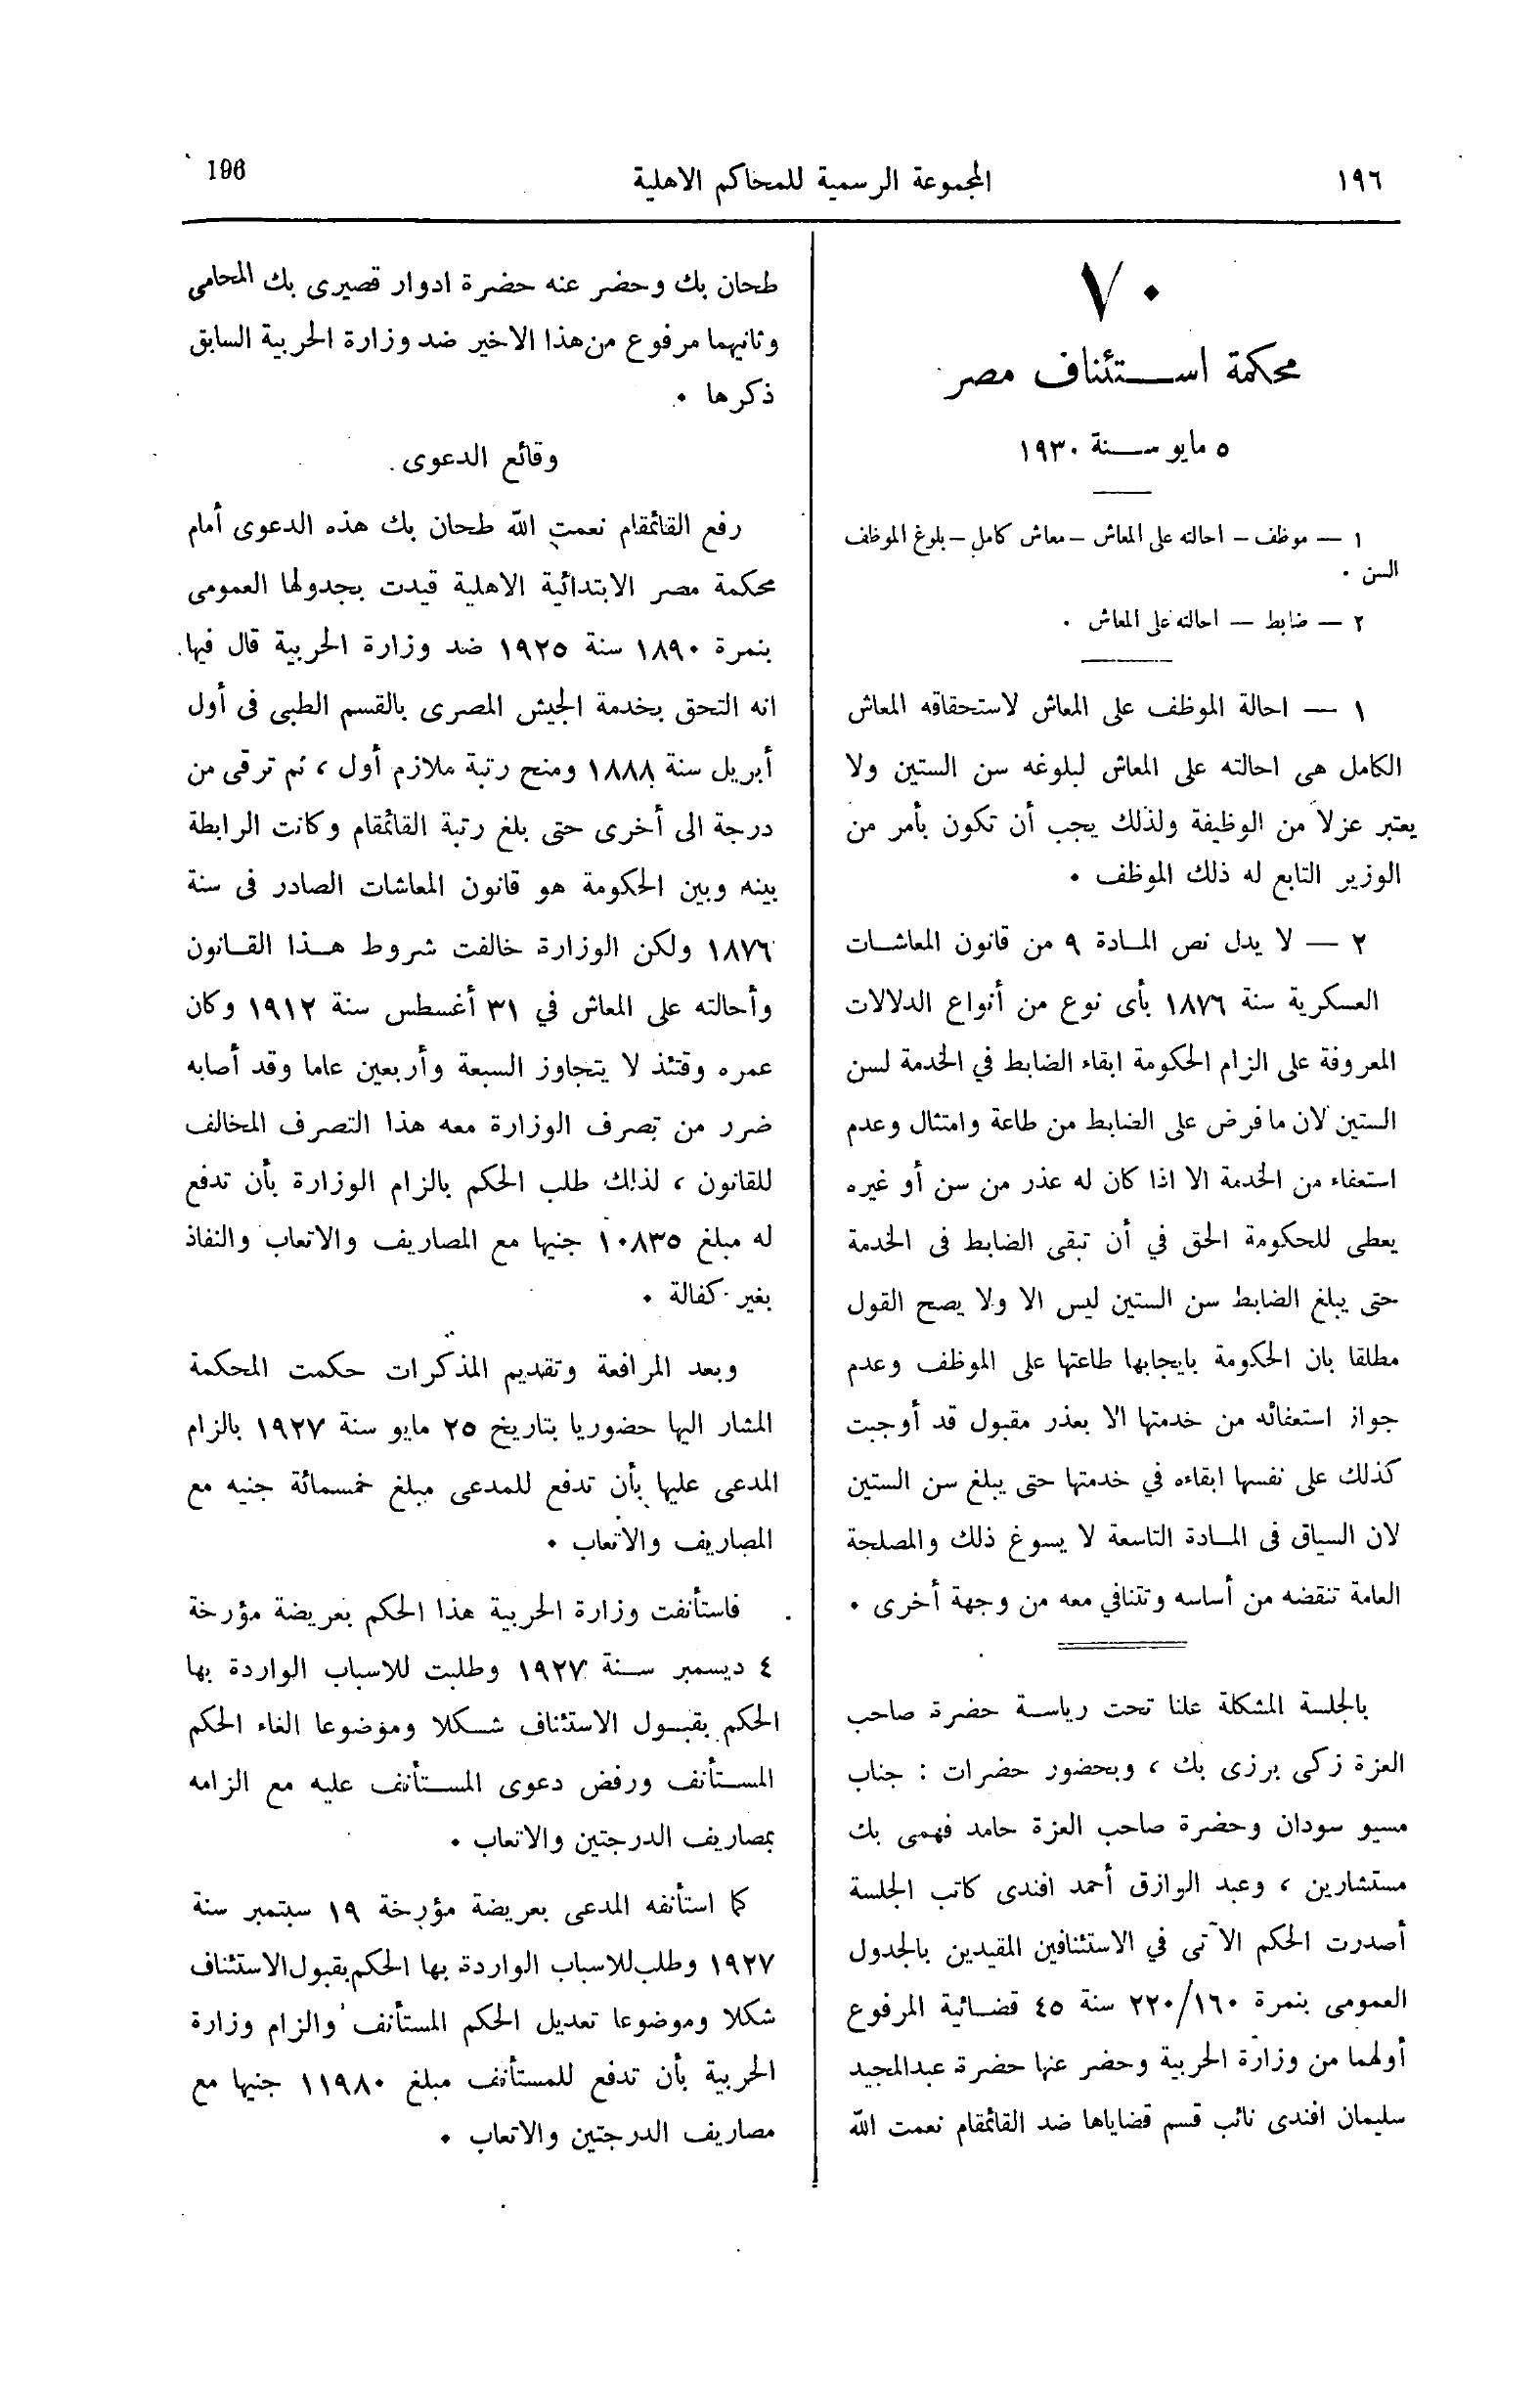 ١٩٦
المجموعة الرسمية للمحاكم الاهلية
196
٧٠
محكمة استئناف مصر
٥ مايو سنة ١٩٣٠
١ — موظف – احالته على المعاش – معاش كامل – بلوغ الموظف
السن ٠
٢ — ضابط — احالته على المعاش ٠
١ — احالة الموظف على المعاش لاستحقاقه المعاش
الكامل هى احالته على المعاش لبلوغه سن الستين ولا
يعتبر عزلا من الوظيفة ولذلك يجب أن تكون بأمر من
الوزير التابع له ذلك الموظف ٠
٢ — لا يدل نص المادة ٩ من قانون المعاشات
العسكرية سنة ١٨٧٦ بأى نوع من أنواع الدلالات
المعروفة على الزام الحكومة ابقاء الضابط في الخدمة لسن
الستين لان ما فرض على الضابط من طاعة وامتثال وعدم
استعفاء من الخدمة الا اذا كان له عذر من سن أو غيره
يعطى للحكومة الحق في أن تبقى الضابط فى الخدمة
حتى يبلغ الضابط سن الستين ليس الا ولا يصح القول
مطلقا بان الحكومة بايجابها طاعتها على الموظف وعدم
جواز استعفائه من خدمتها الا بعذر مقبول قد أوجبت
كذلك على نفسها ابقاءه في خدمتها حتى يبلغ سن الستين
لان السياق فى المادة التاسعة لا يسوغ ذلك والمصلحة
العامة تنقضه من أساسه وتتنافي معه من وجهة أخرى ٠
بالجلسة المشكلة علنا تحت رياسة حضرة صاحب
العزة زكى برزى بك ، وبحضور حضرات : جناب
مسيو سودان وحضرة صاحب العزة حامد فهمى بك
مستشارين ، وعبد الرازق أحمد افندى كاتب الجلسة
أصدرت الحكم الآتى في الاستئنافين المقيدين بالجدول
العمومى بنمرة ٢٢٠/١٦٠ سنة ٤٥ قضائية المرفوع
أولهما من وزارة الحربية وحضر عنها حضرة عبدالمجيد
سليمان افندى نائب قسم قضاياها ضد القائمقام نعمت الله
طحان بك وحضر عنه حضرة ادوار قصيرى بك المحامى
وثانيهما مرفوع من هذا الاخير ضد وزارة الحربية السابق
ذكرها ٠
وقائع الدعوى
رفع القائمقام نعمت الله طحان بك هذه الدعوى أمام
محكمة مصر الابتدائية الاهلية قيدت بجدولها العمومى
بنمرة ١٨٩٠ سنة ١٩٢٥ ضد وزارة الحربية قال فيها
انه التحق بخدمة الجيش المصرى بالقسم الطبى فى أول
أبريل سنة ١٨٨٨ ومنح رتبة ملازم أول ، ثم ترقى من
درجة الى أخرى حتى بلغ رتبة القائمقام وكانت الرابطة
بينه وبين الحكومة هو قانون المعاشات الصادر فى سنة
١٨٧٦ ولكن الوزارة خالفت شروط هذا القانون
وأحالته على المعاش في ٣١ أغسطس سنة ١٩١٢ وكان
عمره وقتئذ لا يتجاوز السبعة وأربعين عاما وقد أصابه
ضرر من تصرف الوزارة معه هذا التصرف المخالف
للقانون ، لذلك طلب الحكم بالزام الوزارة بأن تدفع
له مبلغ ١٠٨٣٥ جنيها مع المصاريف والاتعاب والنفاذ
بغير كفالة ٠
وبعد المرافعة وتقديم المذكرات حكمت المحكمة
المشار اليها حضوريا بتاريخ ٢٥ مايو سنة ١٩٢٧ بالزام
المدعى عليها بأن تدفع للمدعى مبلغ خمسمائة جنيه مع
المصاريف والأتعاب ٠
فاستأنفت وزارة الحربية هذا الحكم بعريضة مؤرخة
٤ ديسمبر سنة ١٩٢٧ وطلبت للاسباب الواردة بها
الحكم بقبول الاستئناف شكلا وموضوعا الغاء الحكم
المستأنف ورفض دعوى المستأنف عليه مع الزامه
بمصاريف الدرجتين والاتعاب ٠
كما استأنفه المدعى بعريضة مؤرخة ١٩ سبتمبر سنة
١٩٢٧ وطلب للاسباب الواردة بها الحكم بقبول الاستئناف
شكلا وموضوعا تعديل الحكم المستأنف والزام وزارة
الحربية بأن تدفع للمستأنف مبلغ ١١٩٨٠ جنيها مع
مصاريف الدرجتين والاتعاب ٠